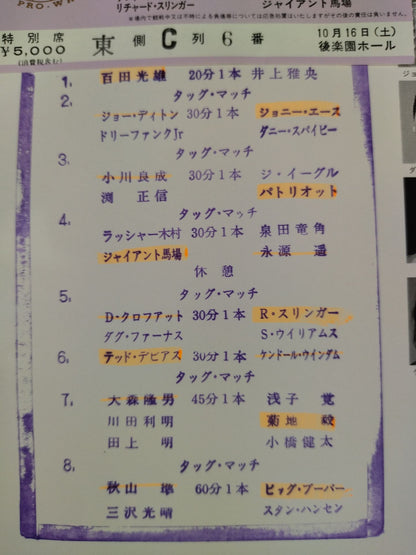 PRO-WR
リチャード・スリンガー
ジャイアント馬場
特別席
¥5,000
(消費税含む)
東 側 C 列 6 番
10月16日(土)
後楽園ホール
1. 百田光雄 20分1本 井上雅央
2. タッグ・マッチ
ジョー・ディトン 30分1本 ジョニー・エース
ドリーファンクJr ダニー・スパイビー
3. タッグ・マッチ
小川良成 30分1本 ジ・イーグル
渕 正信 パトリオット
4. タッグ・マッチ
ラッシャー木村 30分1本 泉田竜角
ジャイアント馬場 永源 遥
休 憩
5. タッグ・マッチ
D・クロファット 30分1本 R・スリンガー
ダグ・ファーナス S・ウイリアムス
6. テッド・デビアス 30分1本 ケンドール・ウインダム
タッグ・マッチ
7. 大森隆男 45分1本 浅子 覚
川田利明 菊地 毅
田上 明 小橋健太
8. タッグ・マッチ
秋山 準 60分1本 ビッグ・ブーバー
三沢光晴 スタン・ハンセン